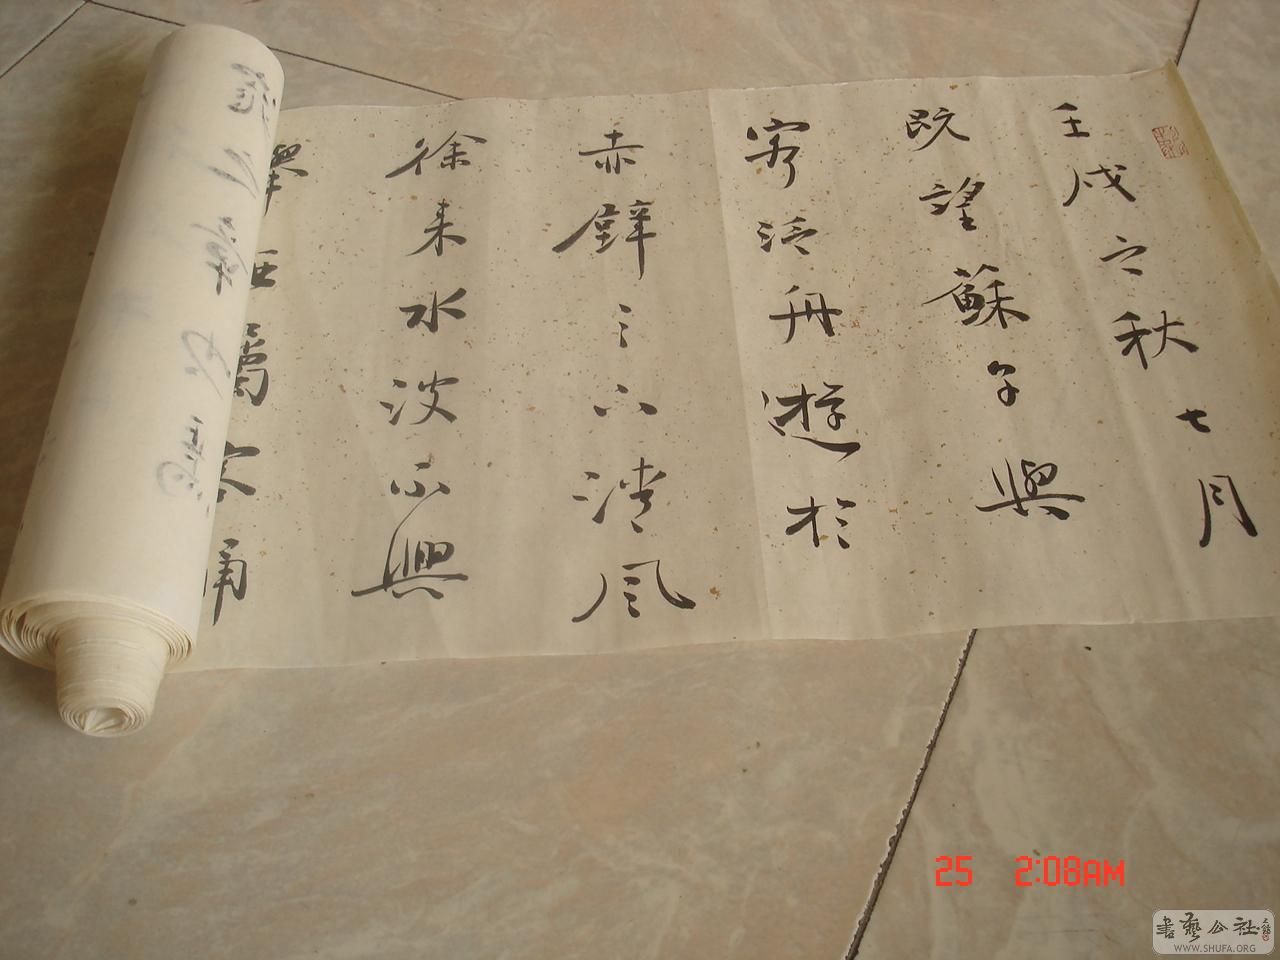 壬戌之秋七月
既望蘇子與
客泛舟遊於
赤壁之下清風
徐来水波不興
舉酒屬客誦
25 2:08AM
書藝公社
WWW.SHUFA.ORG